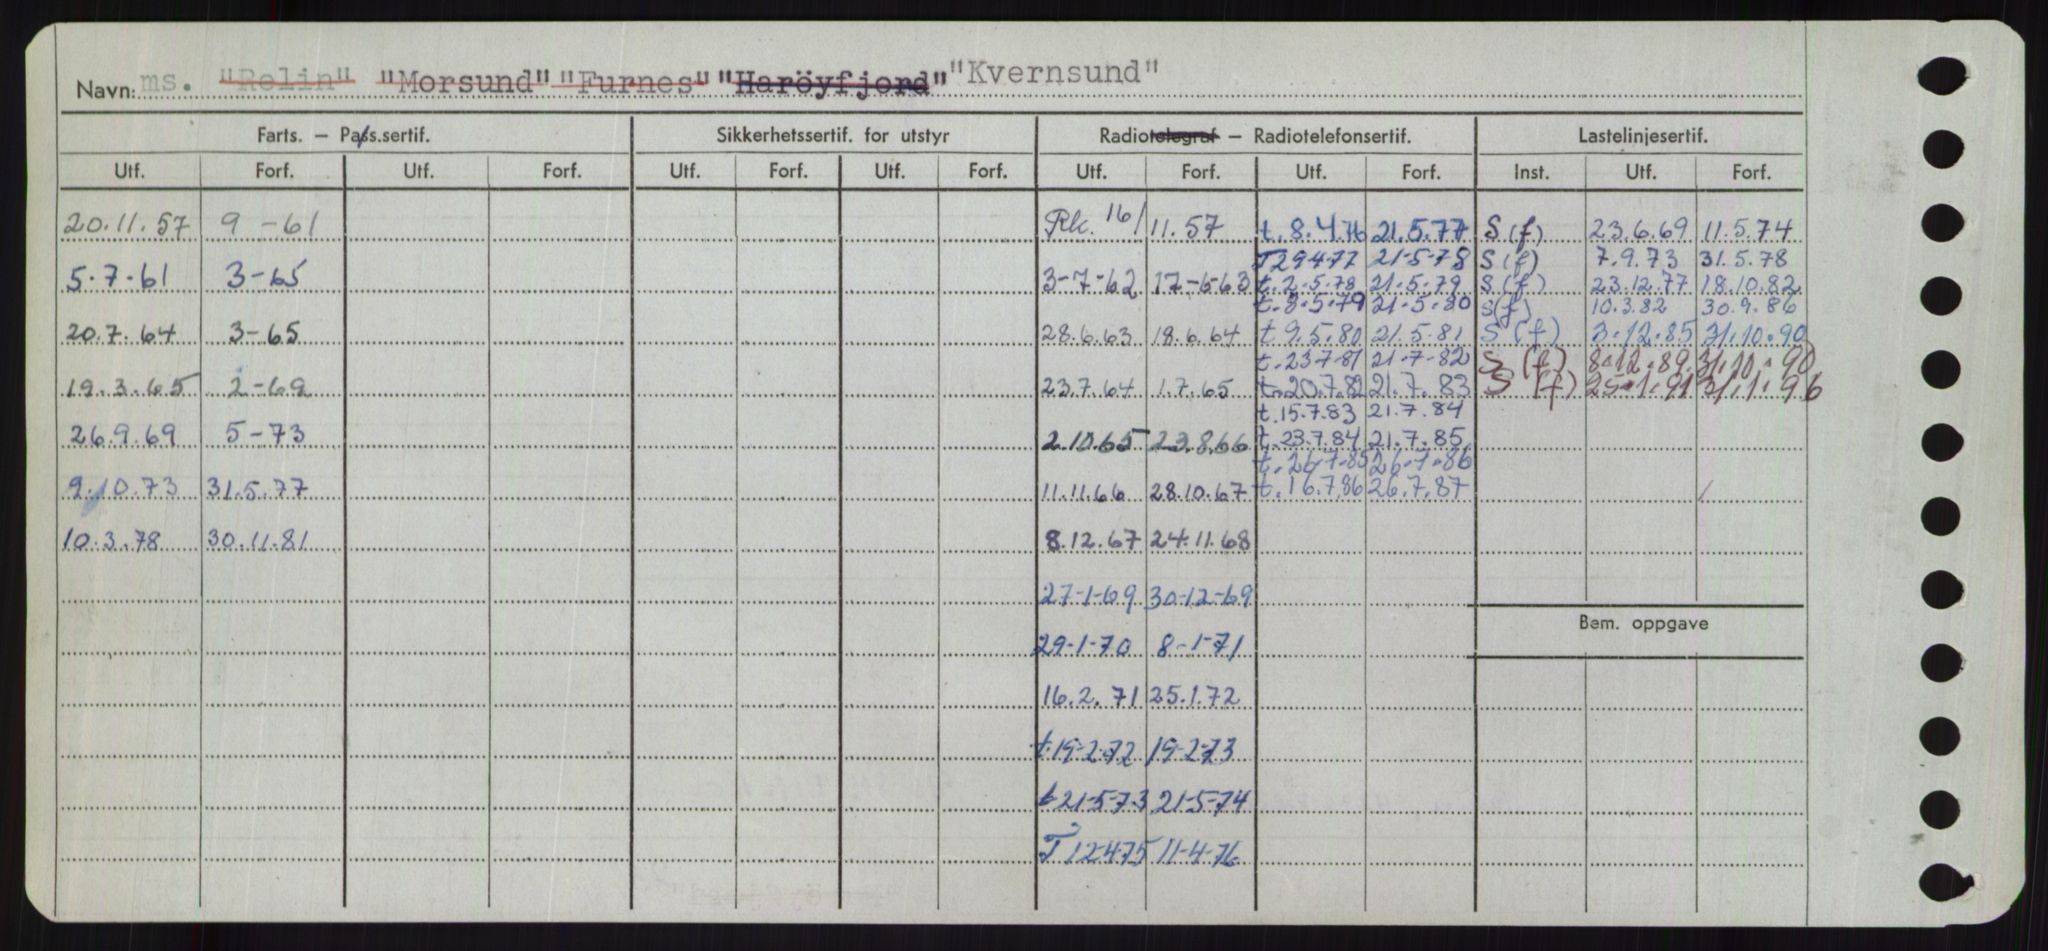 Navn: ms. "Relin" "Morsund" "Furnes" "Haröyfjord" "Kvernsund"
Farts. — Pass.sertif. Sikkerhetssertif. for utstyr Radiotelegraf — Radiotelefonsertif. Lastelinjesertif.
Utf. Forf. Utf. Forf. Utf. Forf. Utf. Forf. Utf. Forf. Utf. Forf. Inst. Utf. Forf.
20.11.57 9-61 Rk. 16/ 11.57 t.8.4.76 21.5.77 S(f) 23.6.69 11.5.74
T29477 21-5-78 S(f) 7.9.73 31.5.78
5.7.61 3-65 3-7-62 17-6-63 t.2.5.78 21.5.79 S(f) 23.12.77 18.10.82
t.8.5.79 21.5.80 S(f) 10.3.82 30.9.86
20.7.64 3-65 28.6.63 18.6.64 t 9.5.80 21.5.81 S(f) 3.12.85 31.10.90
t.23.7.81 21-7-82 S(f) 8.12.89 31.10.90
19.3.65 2-69 23.7.64 1.7.65 t.20.7.82 21.7.83 S(f) 25.1.91 31.1.96
t.15.7.83 21.7.84
26.9.69 5-73 2.10.65 23.8.66 t.23.7.84 21.7.85
t.26.7.85 26.7.86
9.10.73 31.5.77 11.11.66 28.10.67 t.16.7.86 26.7.87
10.3.78 30.11.81 8.12.67 24.11.68
27-1-69 30-12-69
Bem. oppgave
29-1-70 8-1-71
16.2.71 25.1.72
t.19-2-72 19-2-73
t21-5-73 21-5-74
T 12475 11-4-76